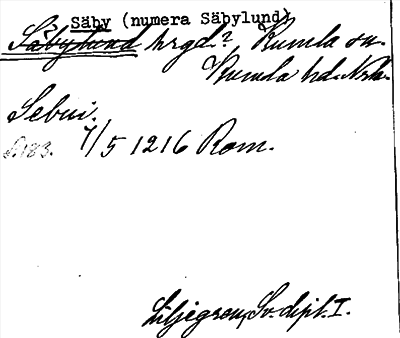 Säby (numera Säbylund)
Säbylund hrgd.?, Kumla sn.
Kumla hd. Nrke.
Sebui.
S. 183. 7/5 1216 Rom.
Liljegren, Sv. dipl. I.